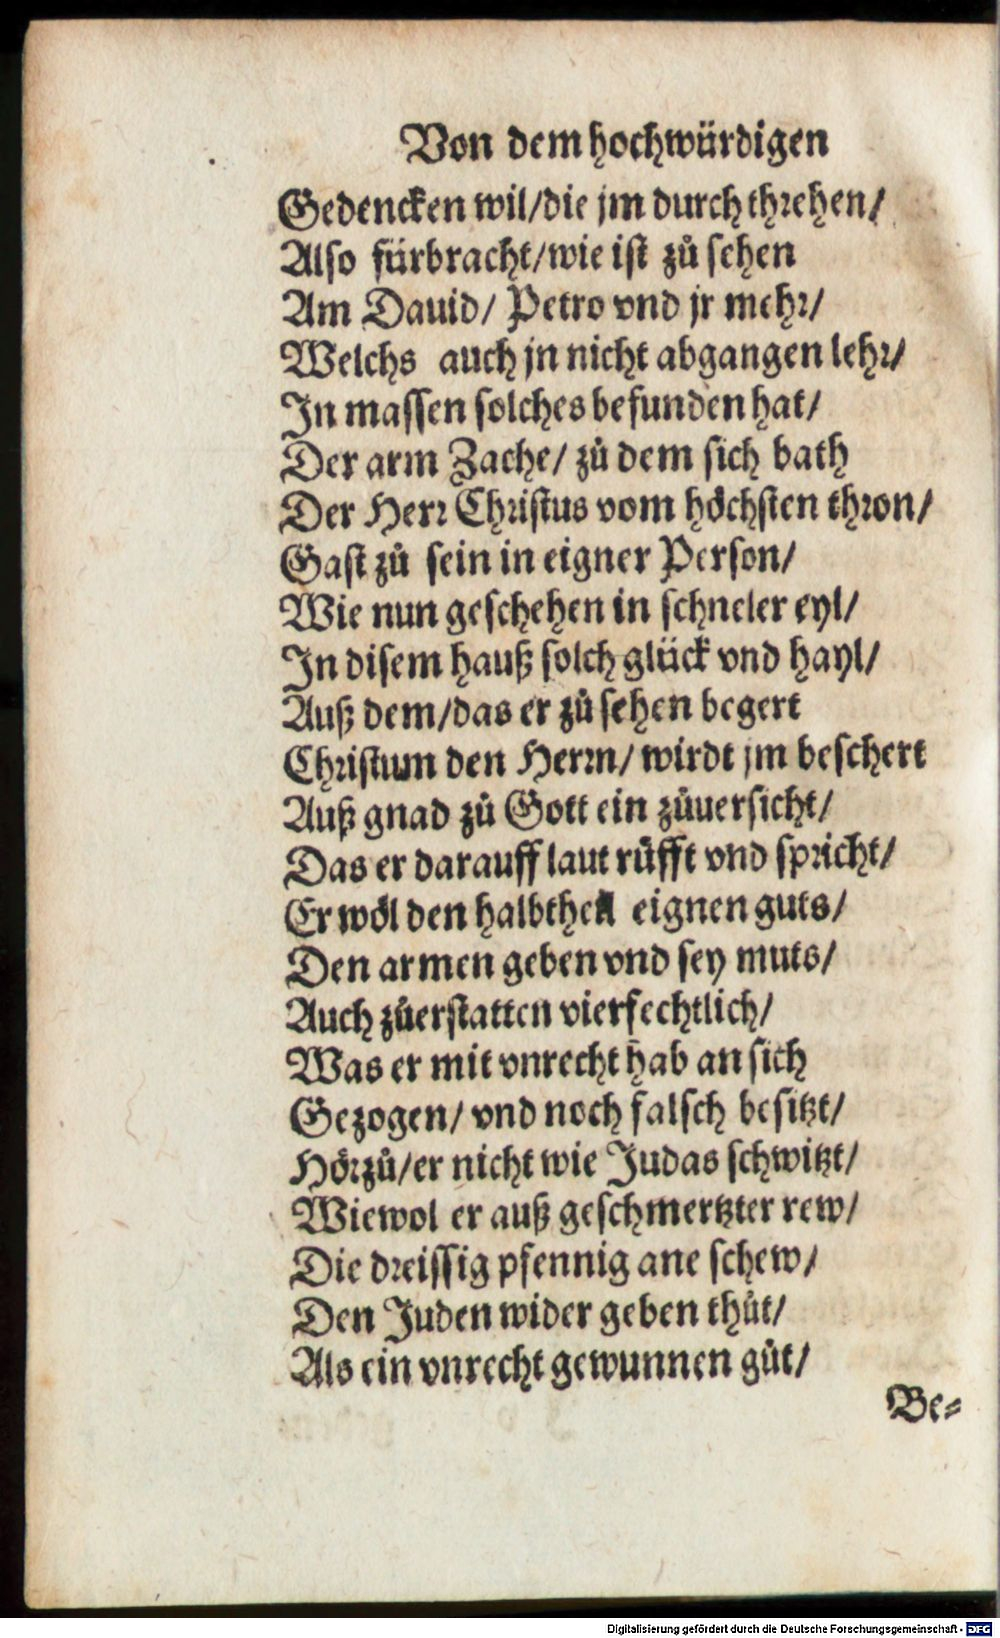 Von dem hochwürdigen
Gedencken wil/die jm durch threhen/
Also fürbracht/wie ist zů sehen
Am Dauid/ Petro vnd jr mehr/
Welchs auch jn nicht abgangen lehr/
In massen solches befunden hat/
Der arm Zache/ zů dem sich bath
Der Herr Christus vom höchsten thron/
Gast zů sein in eigner Person/
Wie nun geschehen in schneler eyl/
In disem hauß solch glück vnd hayl/
Auß dem/das er zů sehen begert
Christum den Herrn/ wirdt jm beschert
Auß gnad zů Gott ein zůuersicht/
Das er darauff laut růfft vnd spricht/
Er wöl den halbtheil eignen guts/
Den armen geben vnd sey muts/
Auch zůerstatten vierfechtlich/
Was er mit vnrecht hab an sich
Gezogen/ vnd noch falsch besitzt/
Hörzů/er nicht wie Judas schwitzt/
Wiewol er auß geschmertzter rew/
Die dreissig pfennig ane schew/
Den Juden wider geben thůt/
Als ein vnrecht gewunnen gůt/
Be⸗
Digitalisierung gefördert durch die Deutsche Forschungsgemeinschaft - DFG